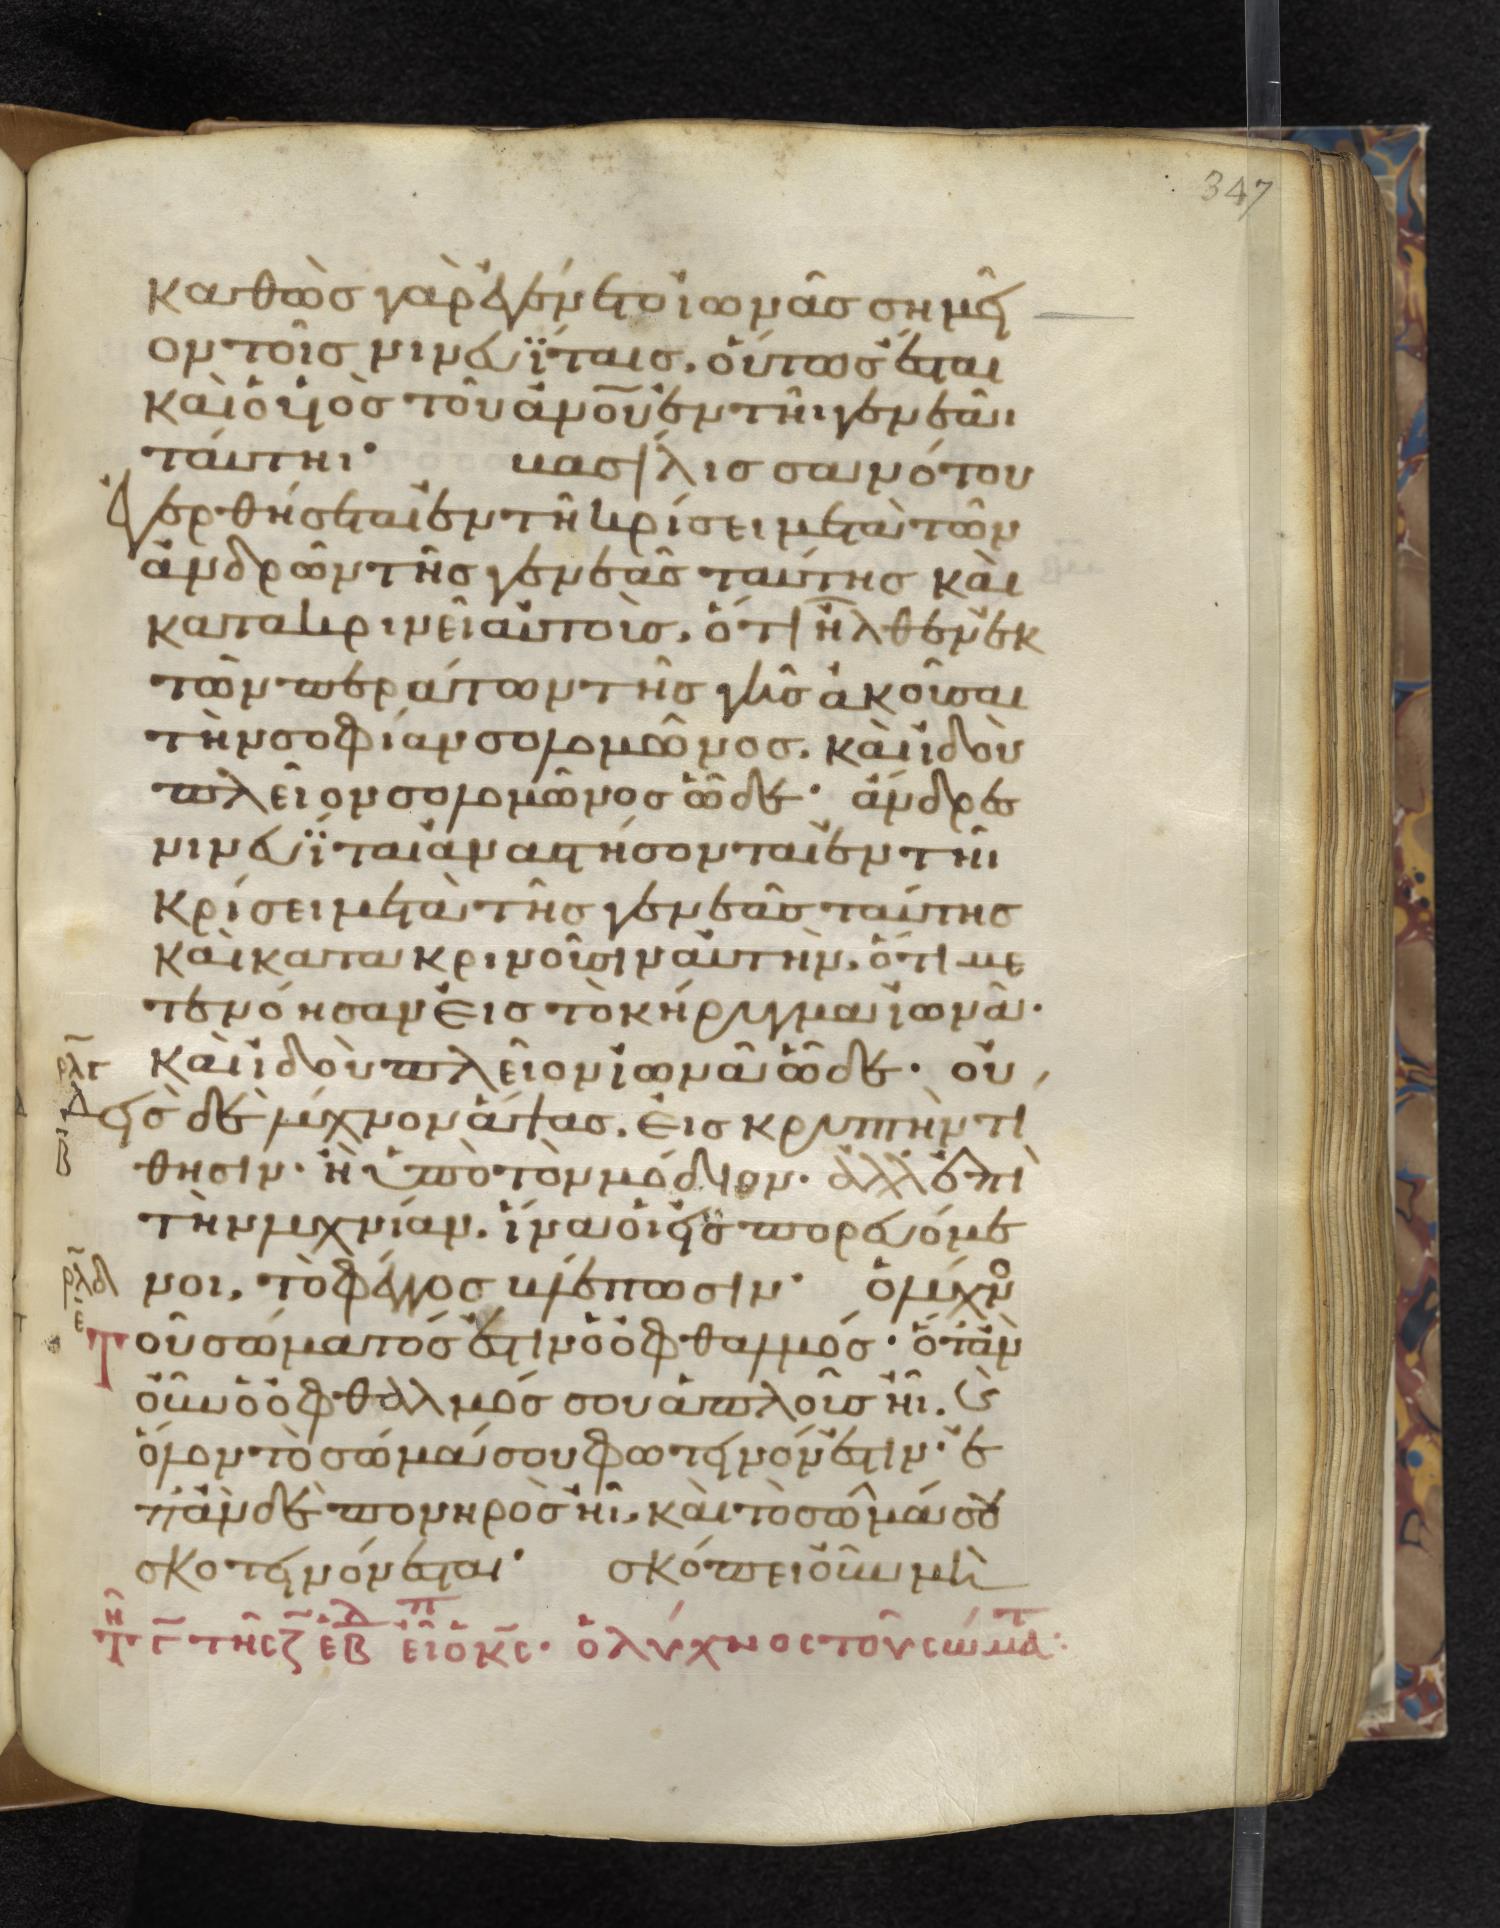 347
καθὼς γὰρ ἐγένετο ἰωνᾶς σημεῖ
ον τοῖς νινευΐταις. οὕτως ἔσται
καὶ ὁ υἱὸς τοῦ ἀνου ἐν τῆι γενεᾶι
ταύτηι· βασίλισσα νότου
ἐγερθήσεται ἐν τῆ κρίσει μετὰ τῶν
ἀνδρῶν τῆς γενεᾶς ταύτης καὶ
κατακρινεῖ αὐτούς. ὅτι ἦλθεν ἐκ
τῶν περάτων τῆς γῆς ἀκοῦσαι
τὴν σοφίαν σολομῶνος. καὶ ἰδοὺ
πλεῖον σολομῶνος ὧδε· ἄνδρες
νινευΐται ἀναστήσονται ἐν τῆι
κρίσει μετὰ τῆς γενεᾶς ταύτης
καὶ κατακρινοῦσιν αὐτήν. ὅτι με
τενόησαν εἰς τὸ κήρυγμα ἰωνᾶ.
καὶ ἰδοὺ πλεῖον ἰωνᾶ ὧδε· οὐ
δεὶς δὲ λύχνον ἅψας. εἰς κρυπτὴν τί
θησιν. ἢ ὑπὸ τὸν μόδιον. ἀλλ' ἐπὶ
τὴν λυχνίαν. ἵνα οἱ εἰσπορευόμε
νοι, τὸ φέγγος βλέπωσιν· ὁ λύχνο
Τοῦ σώματός ἐστιν ὁ ὀφθαλμός· ὅταν
οὖν ὁ ὀφθαλμός σου ἁπλοῦς ἦι. καὶ
ὅλον τὸ σῶμά σου φωτεινόν ἐστιν· ἐ
πὰν δὲ πονηρὸς ἦι, καὶ τὸ σῶμά σου
σκοτεινόν ἔσται· σκόπει οὖν μὴ
τῆς ζ εβ εἶ ὁ κς· ὁ λύχνος τοῦ σώμα: